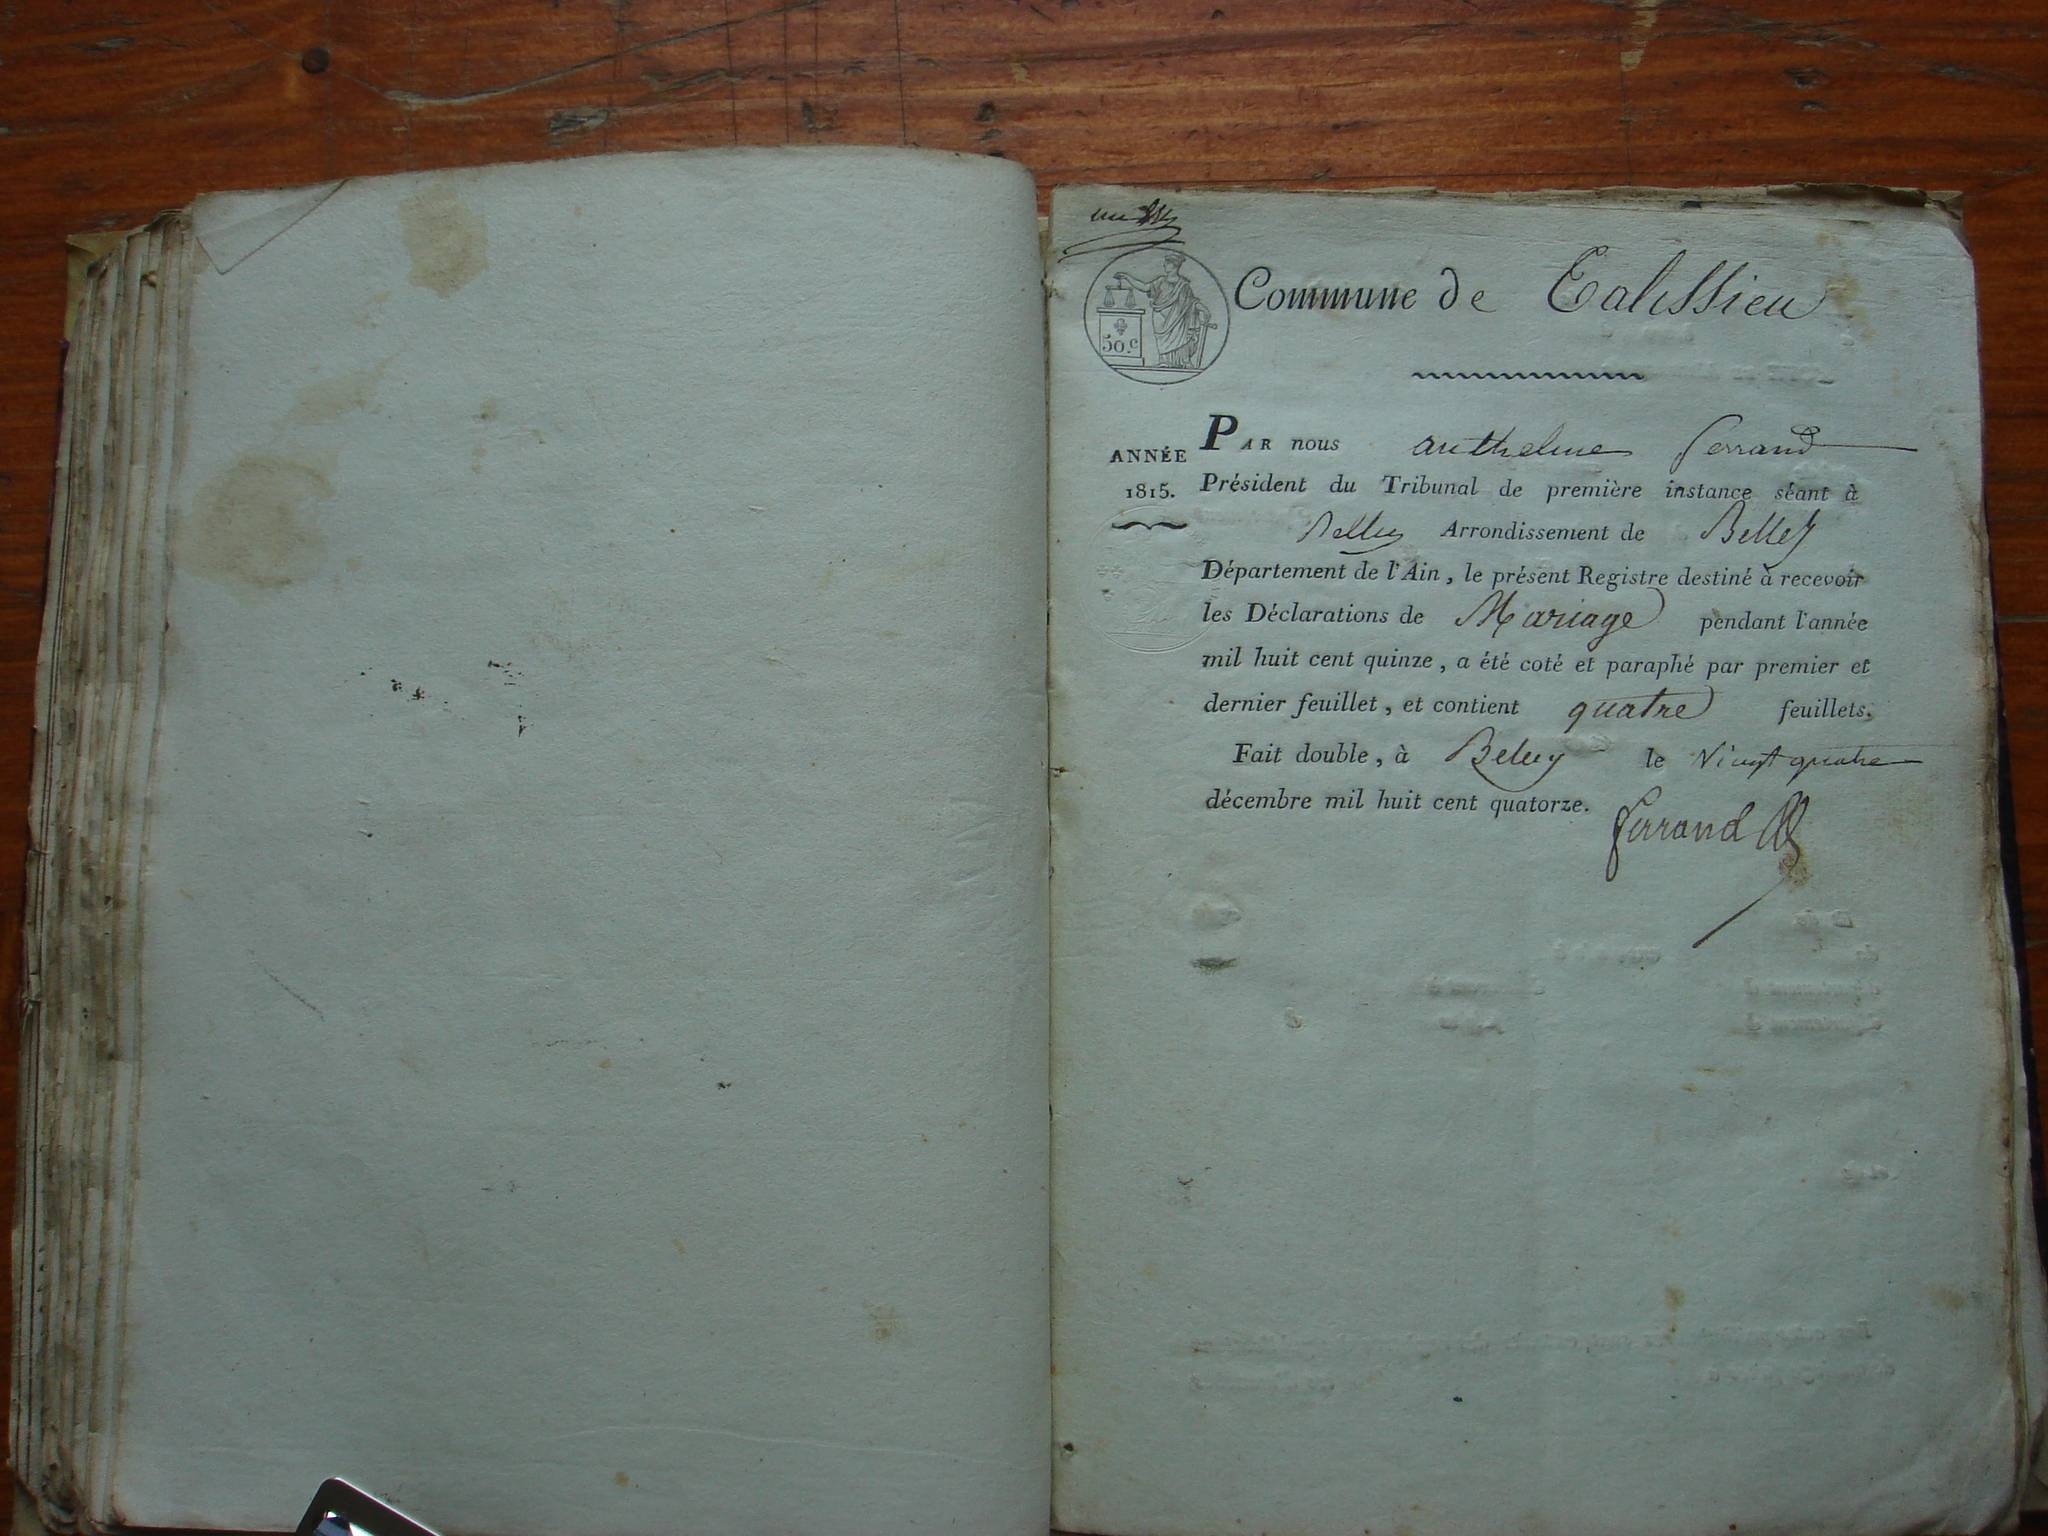 50.c
Commune de Talissieu
ANNÉE
1815.
PAR nous anthelme ferrand
Président du Tribunal de première instance séant à
Belley Arrondissement de Belley
Département de l'Ain, le présent Registre destiné à recevoir
les Déclarations de Mariage pendant l'année
mil huit cent quinze, a été coté et paraphé par premier et
dernier feuillet, et contient quatre feuillets.
Fait double, à Belley le Vingt quatre
décembre mil huit cent quatorze.
ferrand